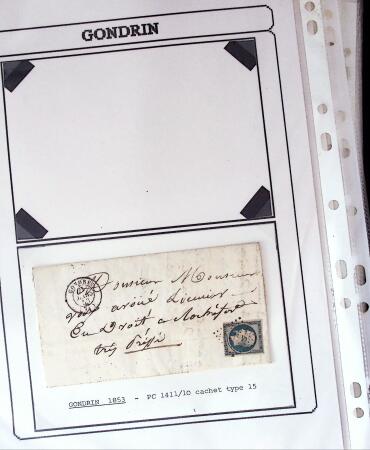 GONDRIN
Monsieur Monsieur
Licencié
En Droit a
très pressé
GONDRIN 1853 - PC 1411/10 cachet type 15